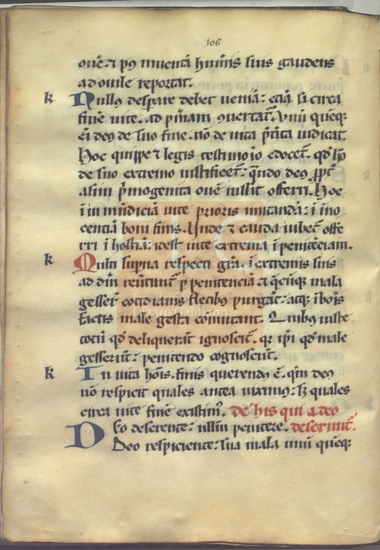 106
oue & p9 inuenta humeris suis gaudens
ad ouile reportat.
k Nullus despare debet uenia: etia si circa
fine uite. ad pniam quertat. Unu queq;
de suo fine. no de uita pterita iudicat.
hoc quippe & legis testimonio edocet. qd ho
de suo extremo iustificet: qndo deus
asini pmogenita oue iussit offerri. hoc
i inmundicia uite prioris mutanda: i ino
centia boni finis. Unde & cauda iubet offe
rri i hostia: idest uite extrema i penitencia.
k Multi supna respecti gra. i extremis suis
ad dm reuertunt p penitencia & quecuq; mala
gesser cotidianis fletibo purgat: atq; i bonis
factis male gesta comutant. Quibus iuste
totu qd deliquerat ignoscit. qr ipi qd male
gesserut: penitendo cognoscut.
k In uita hois. finis querendus e. qm deus
no respicit quales antea uiximus: s; quales
circa uite fine existim9. de his qui a deo
Deo deserente: nullu penitere. deserunt.
Deo respiciente: sua mala unu queq;